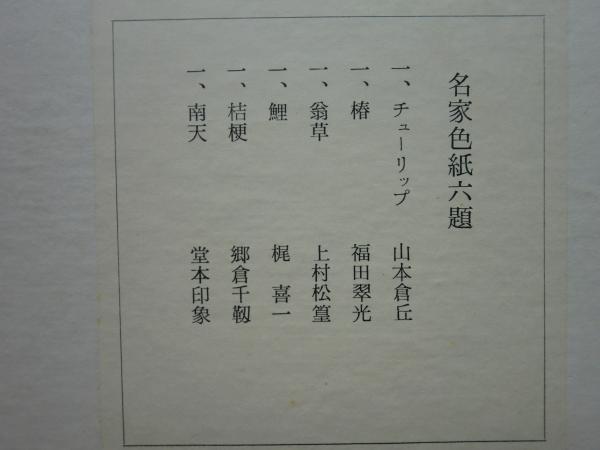 名家色紙六題
一、チューリップ 山本倉丘
一、椿 福田翠光
一、翁草 上村松篁
一、鯉 梶喜一
一、桔梗 郷倉千靱
一、南天 堂本印象